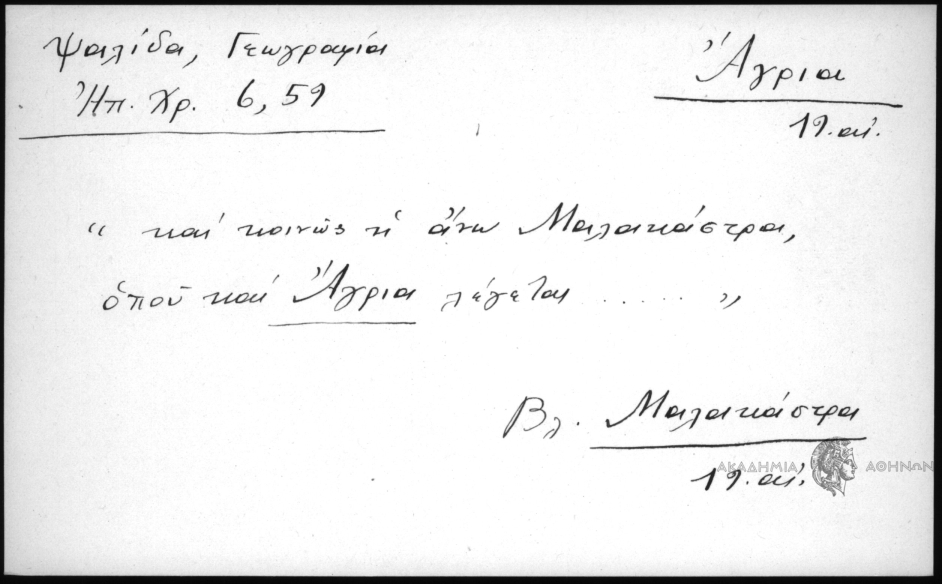 Ψαλίδα, Γεωγραφία
Ἠπ. Χρ. 6, 59
Ἄγρια
19. αἰ.
“ καί κοινῶς ἡ ἄνω Μαλακάστρα,
ὁποῦ καί Ἄγρια λέγεται ...... ”
Βλ. Μαλακάστρα
19. αἰ.
ΑΚΑΔΗΜΙΑ ΑΘΗΝΩΝ